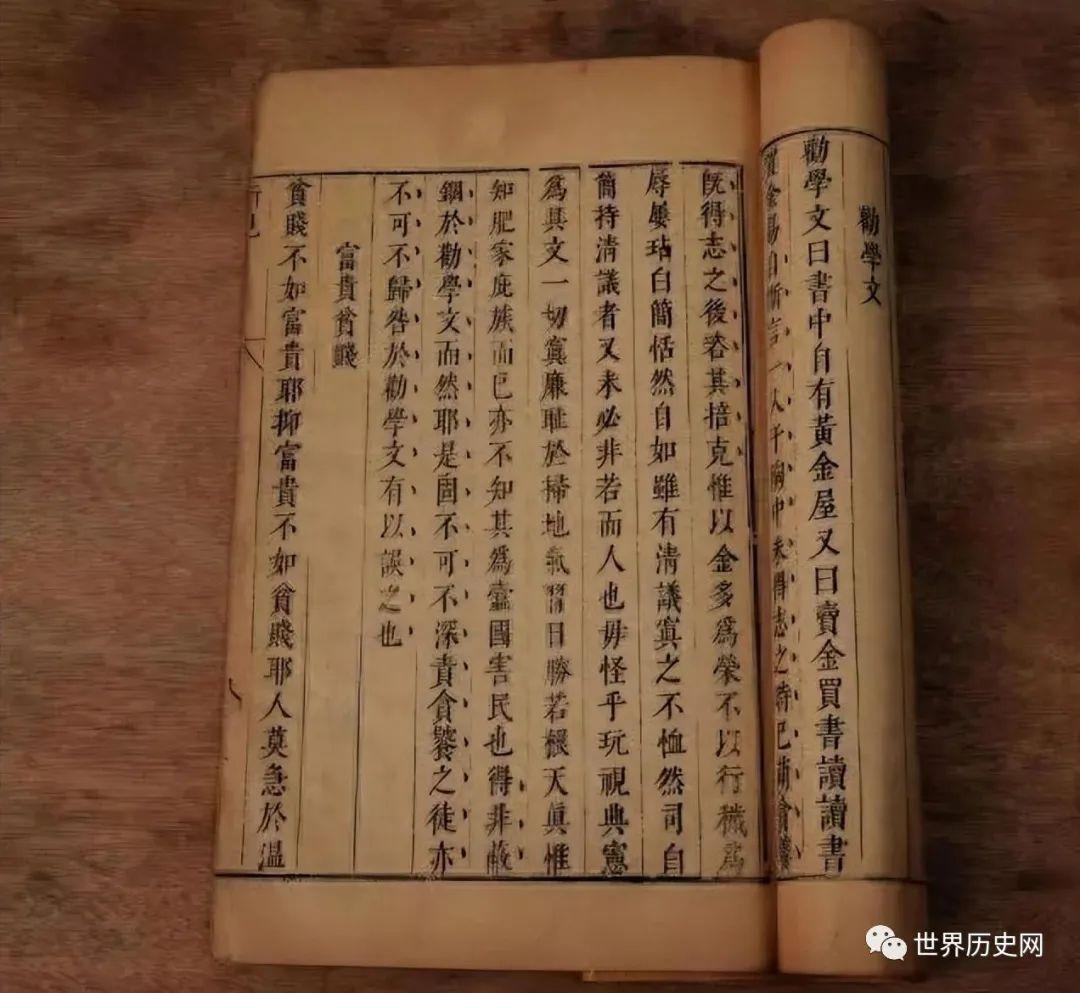 勸學文
勸學文曰書中自有黃金屋又曰賣金買書讀讀書
買金易自昕言一入于胸中未得志之時已
旣得志之後恣其掊克惟以金多爲榮不以行穢爲
辱屢玷白簡恬然自如雖有淸議寘之不恤然司白
簡持淸議者又未必非若而人也毋怪乎玩視典憲
爲具文一切寘廉耻於掃地氣習日勝若根天眞惟
知肥家庇族而已亦不知其爲蠹國害民也得非蔽
錮於勸學文而然耶是固不可不深責貪饕之徒亦
不可不歸咎於勸學文有以誤之也
富貴貧賤
貧賤不如富貴耶抑富貴不如貧賤耶人莫急於溫
世界历史网